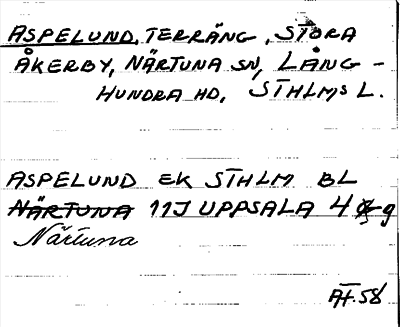 ASPELUND, TERRÄNG, STORA
ÅKERBY, NÄRTUNA SN, LÅNG-
HUNDRA HD, STHLMS L.
ASPELUND EK STHLM BL
NÄRTUNA 11J UPPSALA 4 g
Närtuna
AF.58